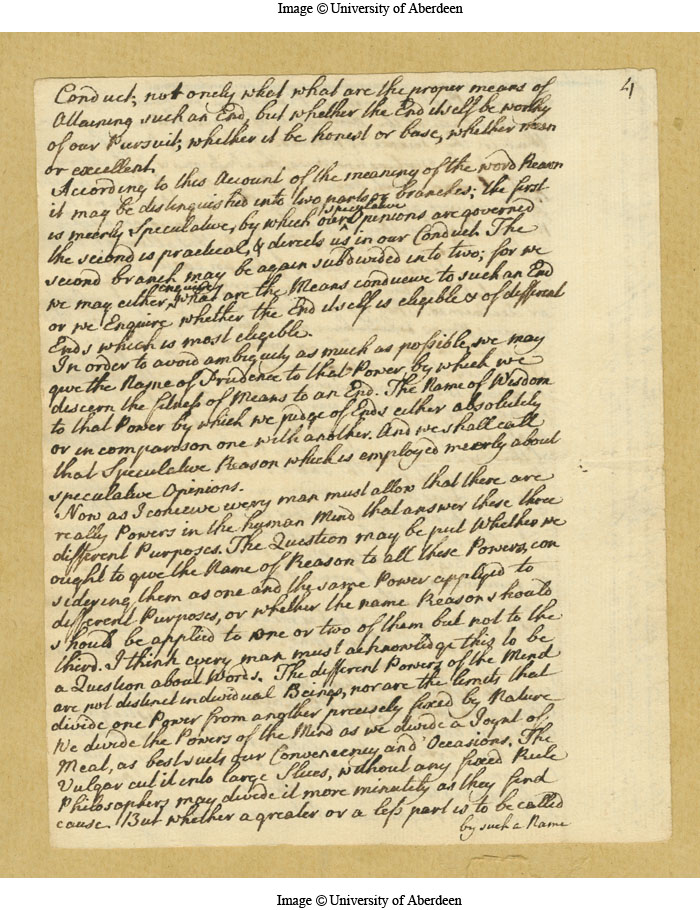 Image © University of Aberdeen
4
Conduct; not onely whet what are the proper means of
Attaining such an End, but whether the End itself be worthy
of our Pursuit; whether it be honest or base, whether mean
or excellent.
According to this Account of the meaning of the word Reason
it may be distinguished into two parts or branches; the first
is meerly speculative, by which our speculative Opinions are governed
the second is practical, & directs us in our Conduct. The
second branch may be again subdivided into two; for we
we may either enquire what are the Means conducive to such an End
or we Enquire whether the End itself is eligible & of different
Ends which is most eligible.
In order to avoid ambiguity as much as possible, we may
give the Name of Prudence to that Power, by which we
discern the fitness of Means to an End. The Name of Wisdom
to that Power by which we judge of Ends either absolutely
or in comparison one with another. And we shall call
that Speculative Reason which is employed meerly about
speculative Opinions.
Now as I conceive every man must allow that there are
really Powers in the human Mind that answer these three
different Purposes. The Question may be put Whether we
ought to give the Name of Reason to all these Powers, con
sidering them as one and the same Power applyed to
different Purposes, or whether the name Reason should
should be applied to one or two of them but not to the
third. I think every man must acknowledge this to be
a Question about Words. The different Powers of the Mind
are not distinct individual Beings, nor are the limits that
divide one Power from another precisely fixed by Nature
We divide the Powers of the Mind as we divide a Joynt of
Meat, as best suits our Conveniency and Occasions. The
Vulgar cut it into large Slices, without any fixed Rule
Philosophers may divide it more minutely as they find
cause. But whether a greater or a less part is to be called
by such a Name
Image © University of Aberdeen